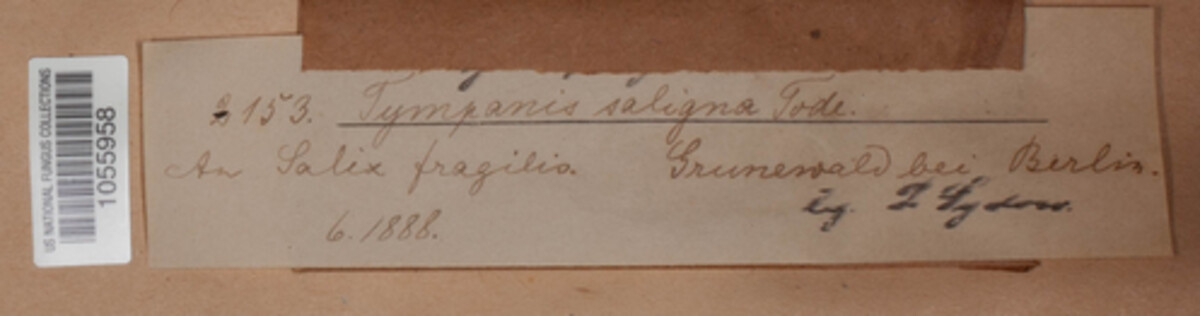 US NATIONAL FUNGUS COLLECTIONS
1055958
153. Tympanis saligna Tode.
An Salix fragilis. Grunewald bei Berlin.
leg. P Sydow.
6.1888.